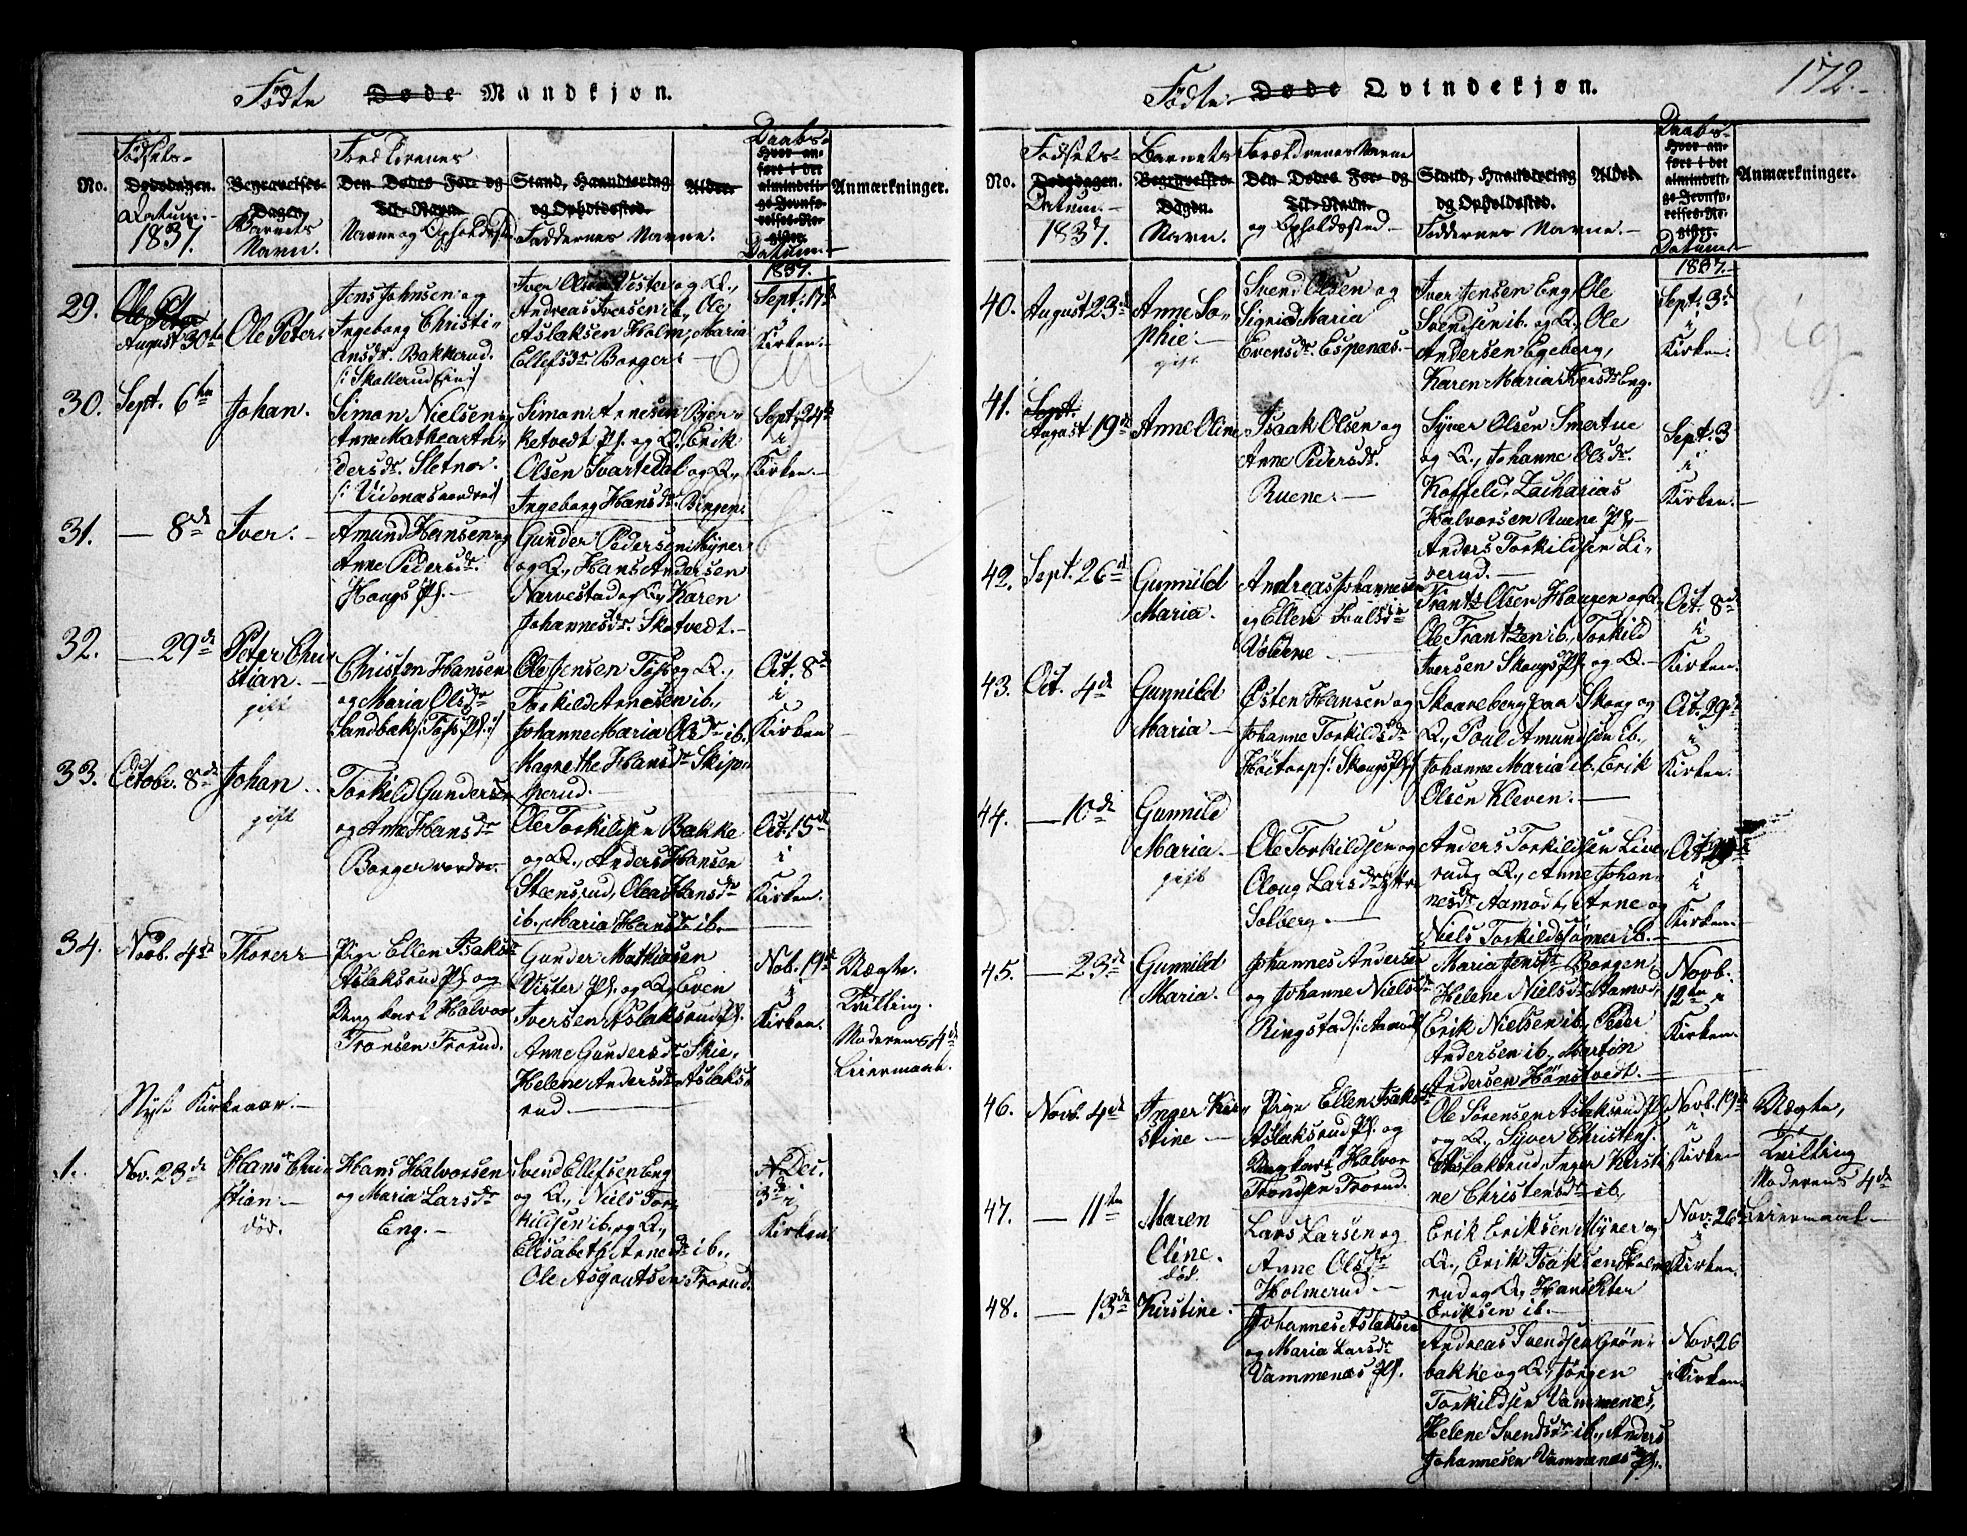 Fødte Døde Mandkjøn.
No.
Fødsels-
Dødsdagen.
Datum.
1837.
Begravelses-
Dagen.
Barnets
Navn.
Forældrenes
Den Dødes For- og
Til-Navn.
Navne og Opholdssted
Stand, Haandtering
og Opholdssted.
Faddernes Navne.
Alder.
Daabs-
Hvor an-
ført i det
almindeli-
ge Jevnfø-
relses-Re-
gister.
Datum.
1837.
Anmærkninger.
29.
August 30te
Ole Peter.
Jens Johnsen og
Ingeborg Christi-
ansdr. Bakkerud.
Iver Olsen Vister og Q.,
Andreas Iversen ib., Ole
Aslaksen Holm, Maria
Ellefsdr Borger
Sept. 17de
i
Kirken.
30.
Sept. 6te
Johan.
Simon Nielsen og
Anne Mathea An-
dersdr. Sletner.
/: Videnæs nordre :/
Simon Arnesen Bjer-
ketvedt Pl. og Q., Erik
Olsen Svartedal og Q.,
Ingeborg Hansdr. Bingen.
Sept. 24de
i
Kirken.
31.
— 8de
Iver.
Amund Hansen og
Anne Pedersdr.
Hougs Pl.
Gunder Pedersen Myrer
og Q., Hans Andersen
Narvestad og Q., Karen
Johannesdr. Skotvedt.
32.
— 29de
Peter Chri-
stian.
gift
Christen Hansen
og Maria Olsdr
Sandbak /: Tøys Pl. :/
Ole Jensen Tøys og Q.,
Torkild Arnesen ib.,
Johanne Maria Olsdr ib.,
Magrethe Hansdr Skip-
perud.
Oct. 8de
i
Kirken
33.
Octobr. 8de
Johan
gift
Torkild Gundersen
og Anne Hansdr
Borger nordre
Ole Torkildsen Bakke
og Q., Anders Hansen
Stensrud, Olea Hansdr
ib., Maria Hansdr ib.
Oct. 15de
i
Kirken.
34.
Novb. 4de
Thorer
Pige Ellen Isaksdr
Aslaksrud Pl. og
Ungkarl Halvor
Tronsen Trorud.
Gunder Mathiasen
Vister Pl. og Q., Even
Iversen Aslaksrud Pl.
Anne Gundersdr Skie,
Helene Andersdr Aslaks-
rud.
Nob. 19de
i
Kirken.
Uægte.
Tvilling.
Moderens 4de
Leiermaal.
Nyt Kirkeaar.
1.
Nov. 23de
Hans Chri-
stian
død.
Hans Halvorsen
og Maria Larsdr
Eng.
Svend Ellefsen Eng
og Q., Niels Tor-
kildsen ib. og Q.,
Elisabeth Arnedr ib.,
Ole Asgoutsen Trorud.
Dec.
3de
i
Kirken
172.
Fødte Døde Qvindekjøn.
No.
Fødsels-
Dødsdagen.
Datum.
1837.
Barnets
Begravelses-
Dagen.
Navn.
Forældrenes Navne
Den Dødes For- og
Til-Navn.
og Opholdssted
Stand, Haandtering
og Opholdssted.
Faddernes Navne.
Alder.
Daabs-
Hvor an-
ført i det
almindeli-
ge Jevnfø-
relses-Re-
gister.
Datum
1837.
Anmærkninger.
40.
August 23de
Anne So-
phie.
gift
Svend Olsen og
Sigrid Maria
Evensdr. Espenæs.
Iver Jensen Eng, Ole
Svendsen ib. og Q., Ole
Andersen Egeberg,
Karen Maria Iversdr Eng.
Sept. 3de
i
Kirken.
41.
Sept.
August 19de
Anne Oline
Isaak Olsen og
Anne Pedersdr.
Ruene.
Syver Olsen Smertue
og Q., Johanne Olsdr.
Koffeld, Zacharias
Halvorsen Ruene Pl,
Anders Torkildsen Li-
verud.
Sept. 3
i
Kirken.
42.
Sept. 26de
Gunnild
Maria.
Andreas Johannesen
og Ellen Poulsdr
Frantz Olsen Haugen og Q,
Ole Frantzen ib., Torkild
Iversen Skougs Pl. og Q.
Oct. 8de
i
Kirken.
43.
Oct. 4de
Gunnild
Maria
Østen Hansen og
Johanne Torkildsdr
Høitorp /: Skougs Pl. :/
Skaareberg paa Skoug og
Q., Poul Amundsen ib.,
Johanne Maria ib. Erik
Olsen Kleven.
Oct. 29de
i
Kirken.
44.
— 10de
Gunnild
Maria
gift
Ole Torkildsen og
Oloug Larsdr Ytre
Solberg.
Anders Torkildsen Live-
rud og Q., Anne Johan-
nesdr Aamodt, Arne og
Niels Torkildsønner ib.
Oct. 29de
i
Kirken.
45.
— 23de
Gunnild
Maria.
Johannes Andersen
og Johanne Nielsdr
Ringstad /: Aamodt :/
Maria Jensdr Borgen,
Helene Nielsdr Aamodt,
Erik Nielsen ib., Peder
Andersen ib., Martin
Andersen Hønstvedt.
Novb.
12te i
Kirken.
46.
Novb. 4de
Inger Kir-
stine
Pige Ellen Isaksdr
Aslaksrud Pl. og
Ungkarl Halvor
Trondsen Trorud.
Ole Sørensen Aslaksrud Pl.
og Q., Syver Christens.
Aslaksrud, Inger Kirsti-
ne Christensdr ib,
Nov. 19de
i
Kirken
Uægte,
Tvilling
Moderens 4de
Leiermaal.
47.
— 11te
Maren
Oline.
død.
Lars Larsen og
Anne Olsdr
Holmerud.
Erik Eriksen Myrer og
Q., Erik Isaksen Holme-
rud og Q., Hans Peter
Eriksen ib.
Nov. 26de
i
Kirken.
48.
— 13de
Kirstine.
Johannes Aslaksen
og Maria Larsdr
Vammenæs Pl.
Andreas Svendsen Grøn-
bakke og Q., Jørgen
Torkildsen Vammenæs,
Helene Svendsdr ib., Anders
Johannesen Vammenæs Pl.
Nov. 26
i Kirken.